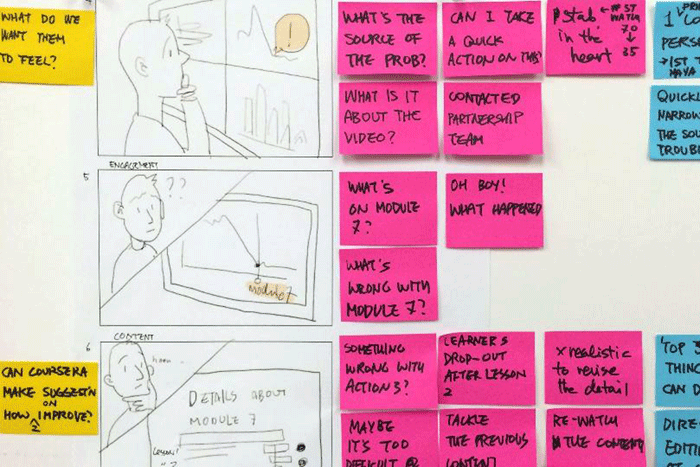 WHAT DO WE
WANT THEM
TO FEEL?
!
WHAT'S THE
SOURCE OF
THE PROB?
CAN I TAKE
A QUICK
ACTION ON THIS?
* stab
in the
heart
70
35
1
PERS
WHAT IS IT
ABOUT THE
VIDEO?
CONTACTED
PARTNERSHIP
TEAM
QUICKL
NARROW
THE SOU
TROUBL
ENGAGEMENT
5
??
MODULO 7
WHAT'S
ON MODULE
7?
OH BOY!
WHAT HAPPENED
WHAT'S
WRONG WITH
MODULE 7?
CONTENT
6
CAN COURSERA
MAKE SUGGEST'N
ON
HOW 2 IMPROVE?
hmm..
DETAILS ABOUT
MODULE 7
SOMETHING
WRONG WITH
ACTION 3?
LEARNERS
DROP-OUT
AFTER LESSON
2
x realistic
to revise
the detail
TOP 3
THING
CAN D
MAYBE
IT'S TOO
DIFFICULT @
TACKLE
THE PREVIOUS
CONTENT
RE-WATCH
THE CONTENT
DIRE
EDITI